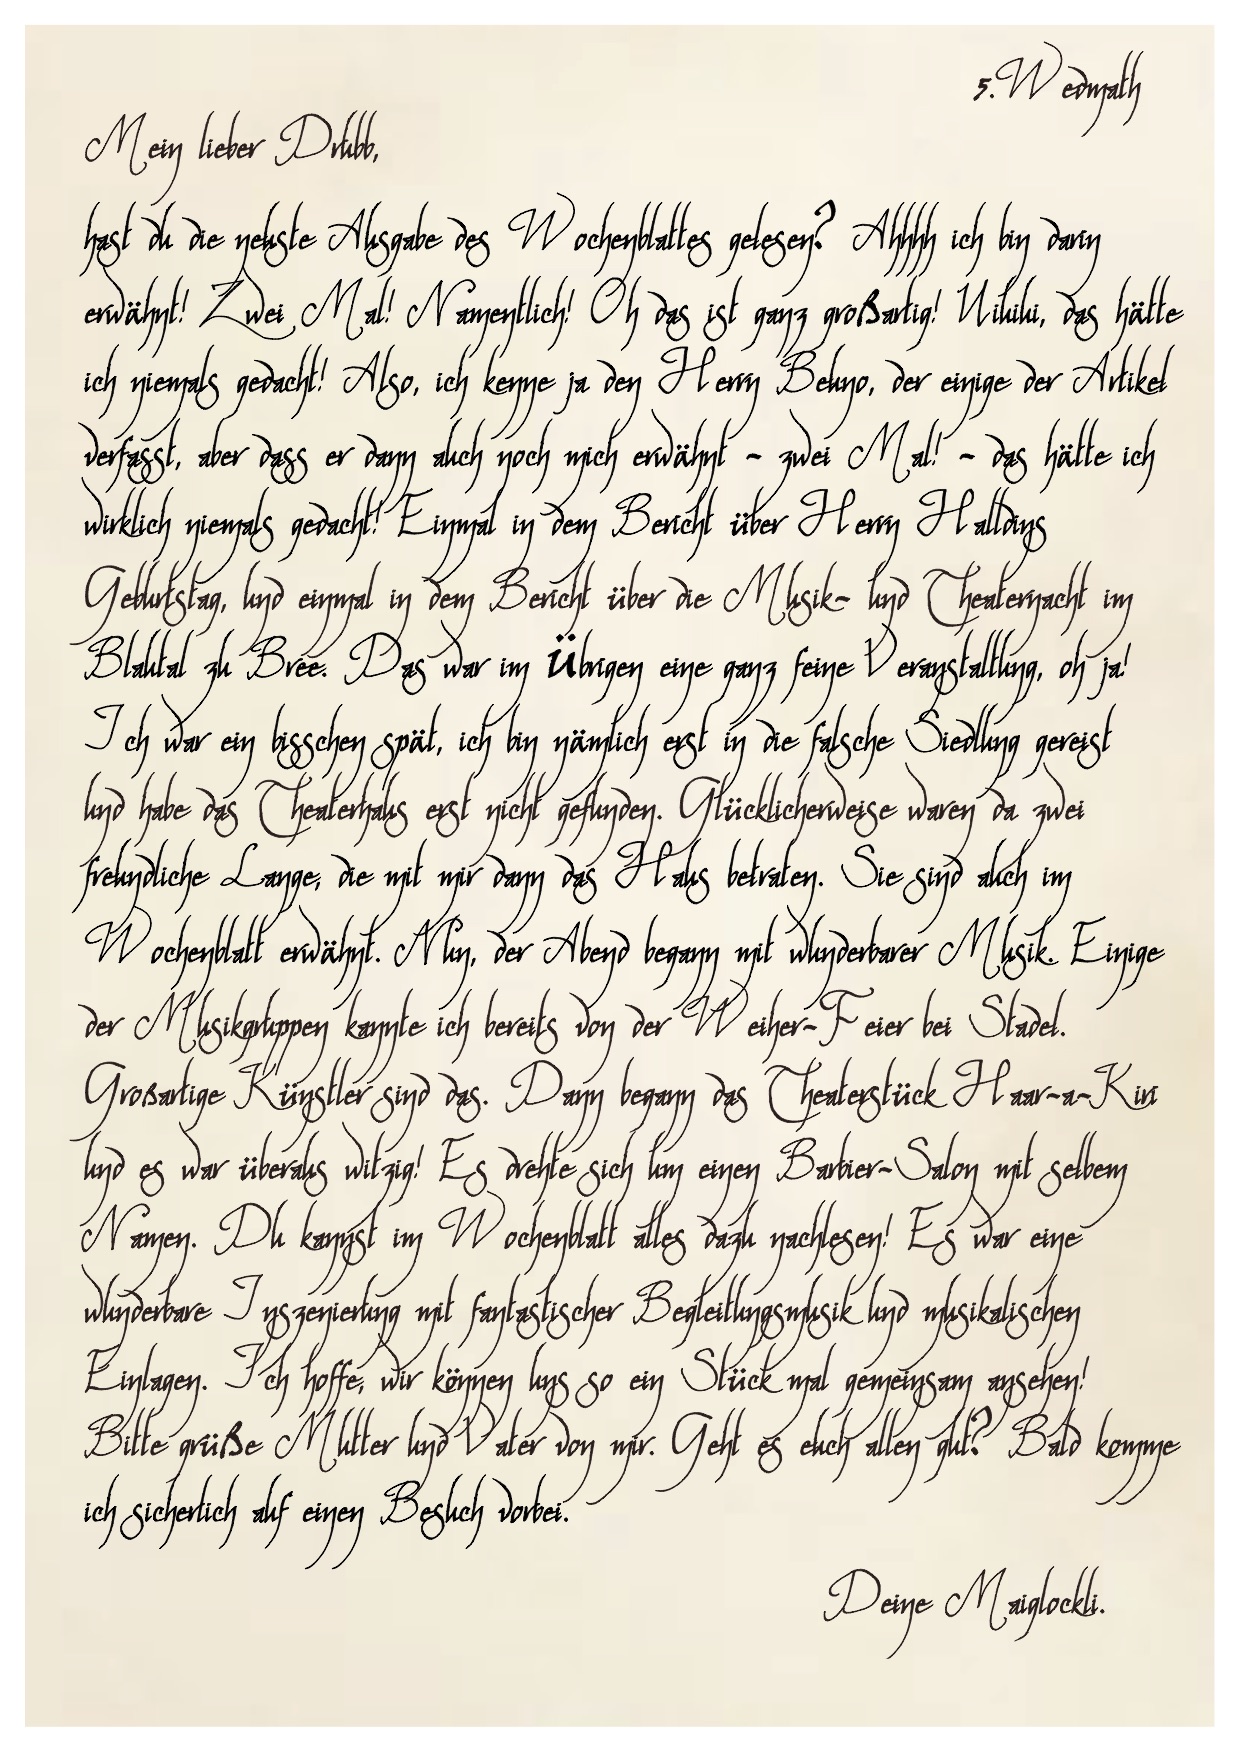 5. Wedmath
Mein lieber Drubb,
hast du die neuste Ausgabe des Wochenblattes gelesen? Ahhhh ich bin darin
erwähnt! Zwei Mal! Namentlich! Oh das ist ganz großartig! Uihihi, das hätte
ich niemals gedacht! Also, ich kenne ja den Herrn Beluno, der einige der Artikel
verfasst, aber dass er dann auch noch mich erwähnt - zwei Mal! - das hätte ich
wirklich niemals gedacht! Einmal in dem Bericht über Herrn Halldins
Geburtstag, und einmal in dem Bericht über die Musik- und Theaternacht im
Blautal zu Bree. Das war im Übrigen eine ganz feine Veranstaltung, oh ja!
Ich war ein bisschen spät, ich bin nämlich erst in die falsche Siedlung gereist
und habe das Theaterhaus erst nicht gefunden. Glücklicherweise waren da zwei
freundliche Lange, die mit mir dann das Haus betraten. Sie sind auch im
Wochenblatt erwähnt. Nun, der Abend begann mit wunderbarer Musik. Einige
der Musikgruppen kannte ich bereits von der Weiher-Feier bei Stadel.
Großartige Künstler sind das. Dann begann das Theaterstück Haar-a-Kiri
und es war überaus witzig! Es drehte sich um einen Barbier-Salon mit selbem
Namen. Du kannst im Wochenblatt alles dazu nachlesen! Es war eine
wunderbare Inszenierung mit fantastischer Begleitungsmusik und musikalischen
Einlagen. Ich hoffe, wir können uns so ein Stück mal gemeinsam ansehen!
Bitte grüße Mutter und Vater von mir. Geht es euch allen gut? Bald komme
ich sicherlich auf einen Besuch vorbei.
Deine Maiglockli.